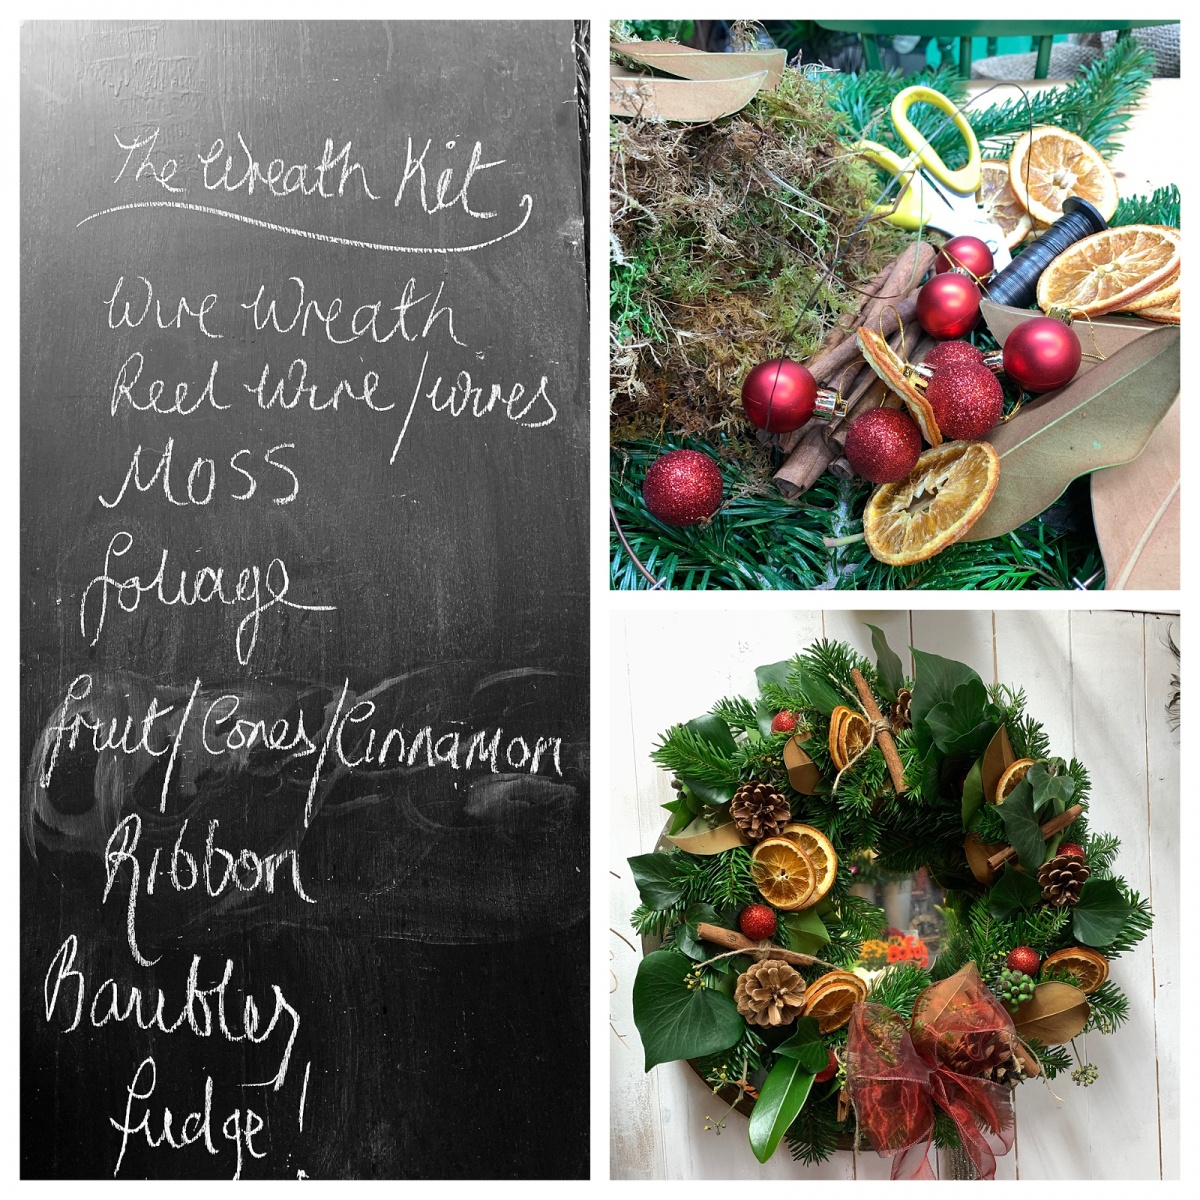 The Wreath Kit
Wire Wreath
Reel Wire/wires
Moss
foliage
fruit/Cones/Cinnamon
Ribbon
Baubles
fudge!